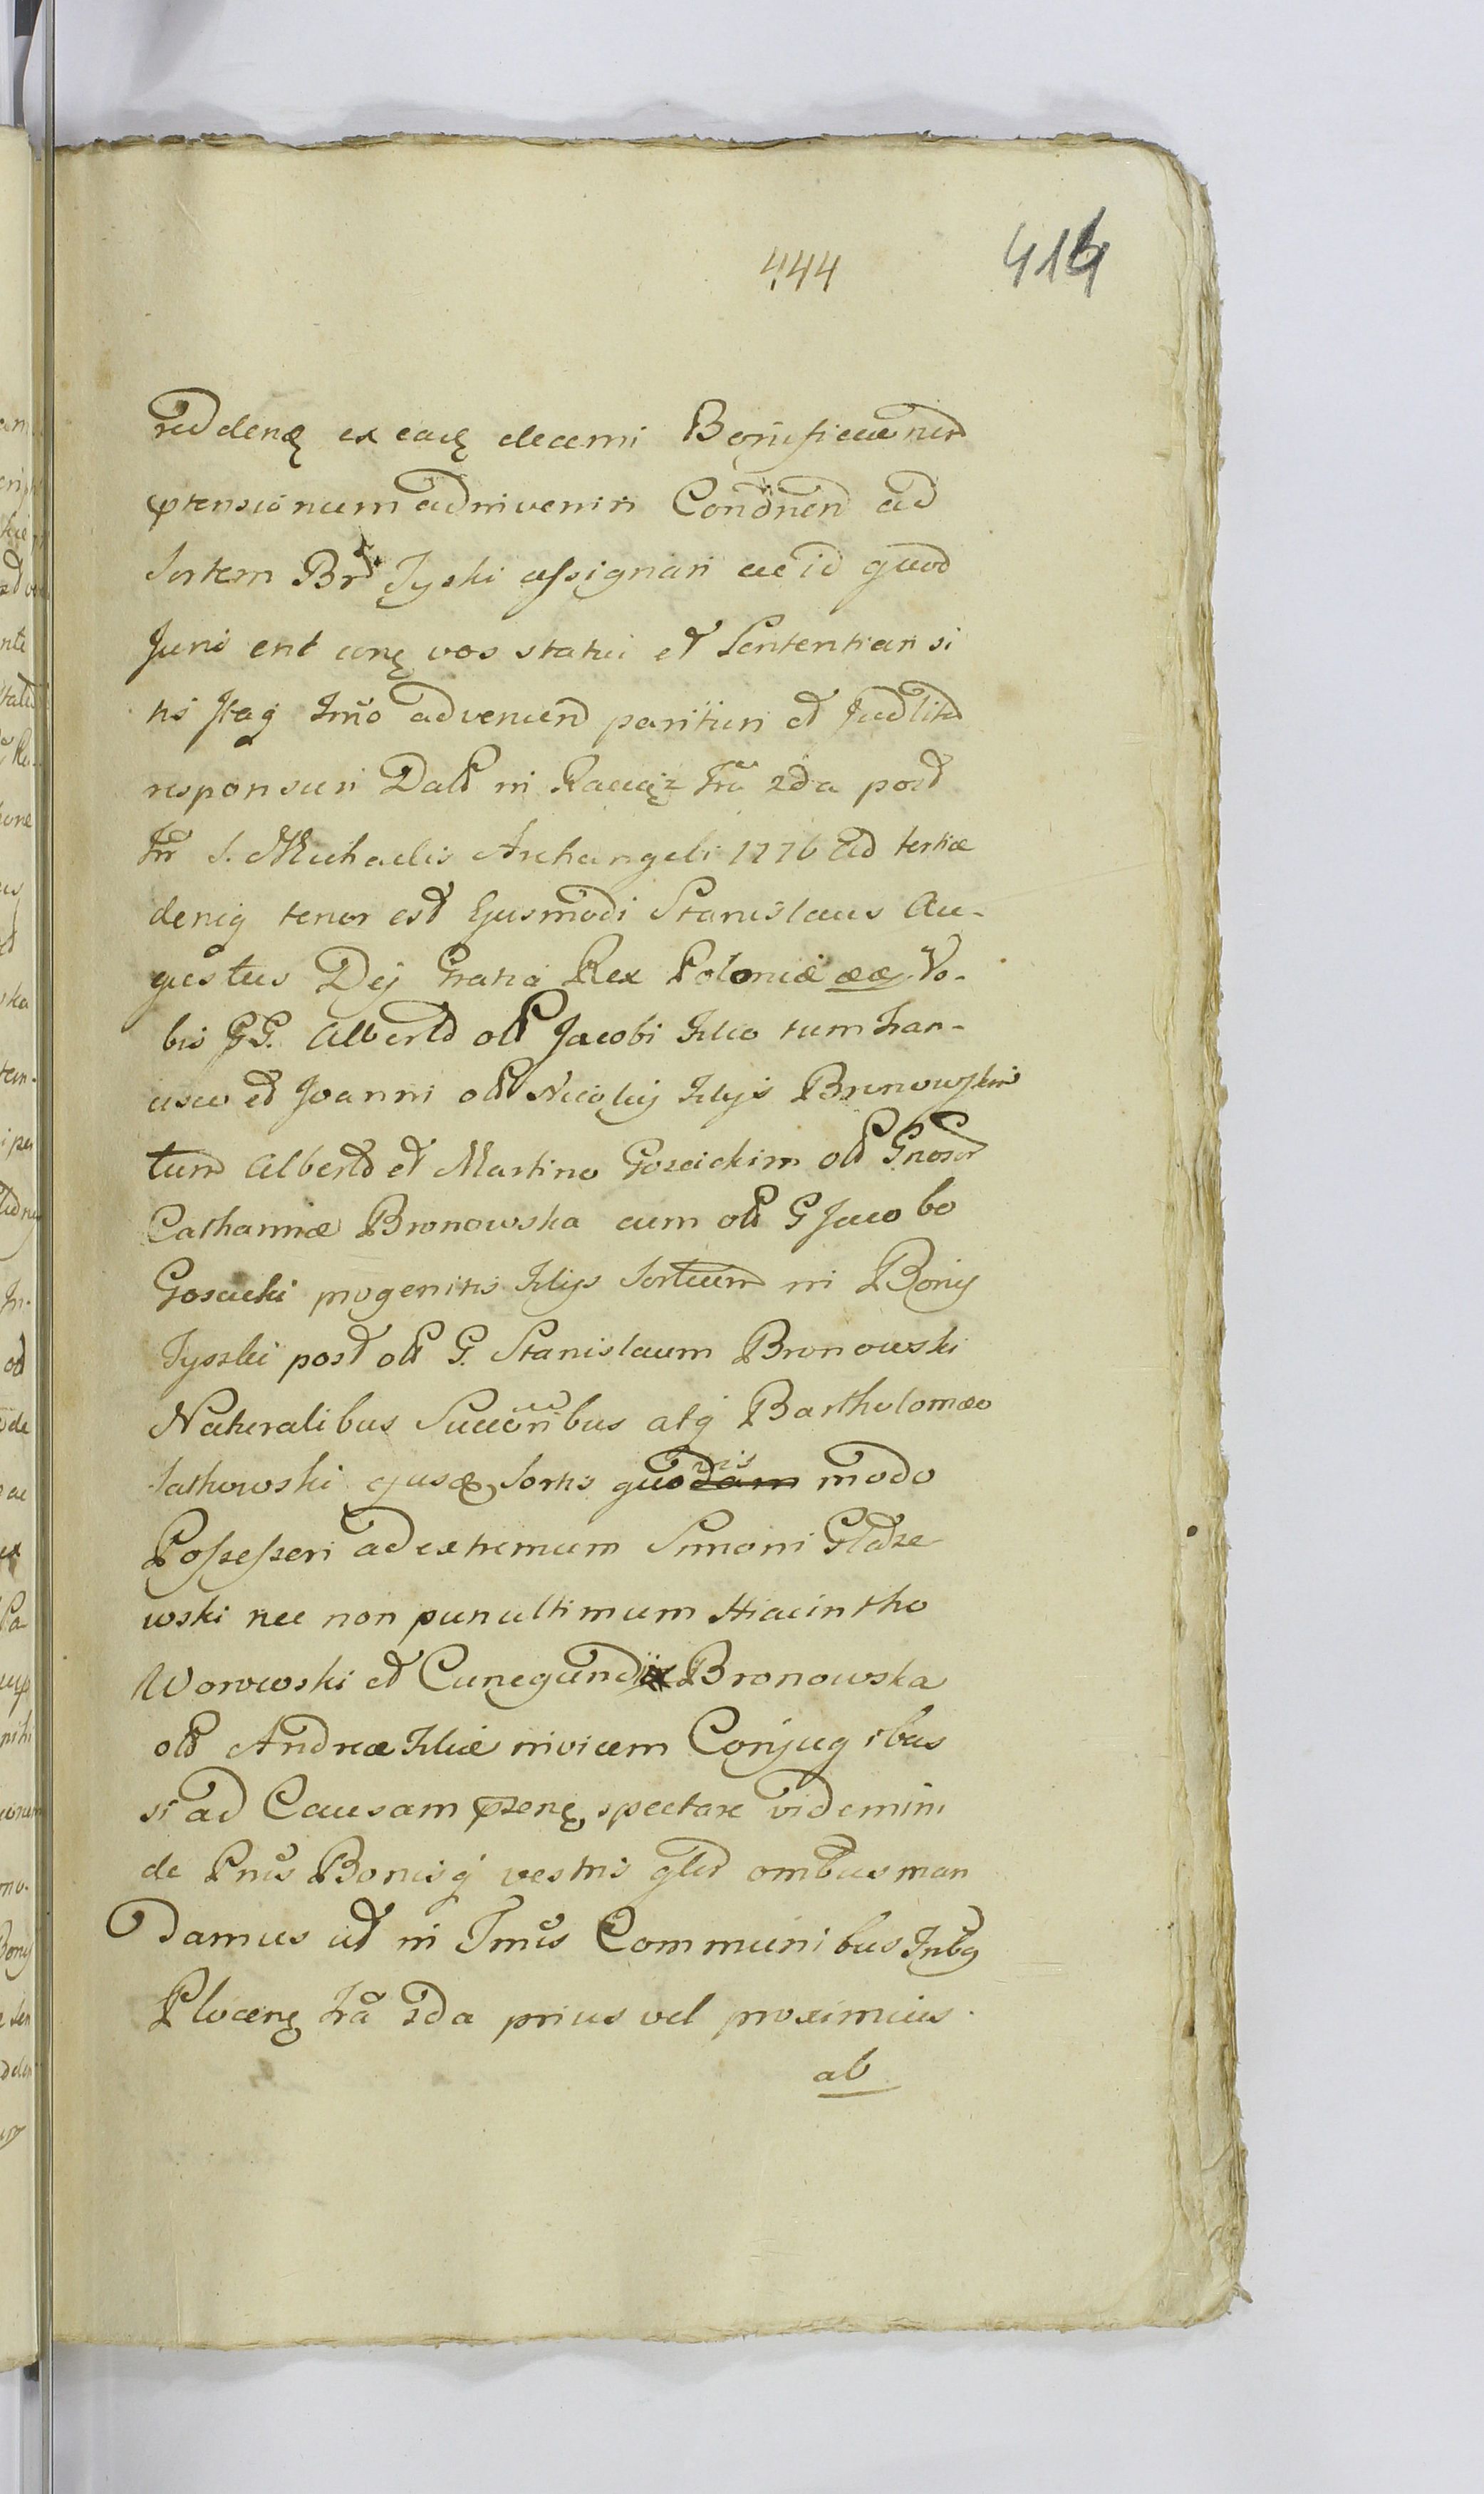 444 414
reddenę ex eacę decerni Bonificaẽnem
prtensionum adinveniri Condnẽn ad
Sortem Br̃ Tyski assignari ac id quod
Juris erit conę vos statui et Sententiari si
tis Itaq Trño advenien parituri et Judlitr
responsuri Datt in Raciąz Fra 2da post
Fm S. Michaelis Archangeli 1776 Ad tertiæ
deniq tenor est Ejusmodi Stanislaus Au-
gustus Dej Gratia Rex Poloniæ ææ Vo-
bis GG. Alberto olt Jacobi Filio tum Fran-
cisco et Joanni olt Nicolaj Filijs Bronowskim
tum Alberto et Martino Goscickim olt Gnosor
Catharinæ Bronowska cum olt G Jacobo
Goscicki progenitis Filijs Sortium in Bonij
Tysski post olt G. Stanislaum Bronowski
Naturalibus Succoribus atq Bartholomæo
Sathowski ejusdę Sortis quodam vis modo
Possessori ad extremum Simoni Gladze
wski nec non punultimum Hiacintho
Worowski et Cunegundi Bronowska
olt Andreæ Filiæ invicem Conjugibus
si ad Causam przenę spectare videmini
de Pnis Bonisq vestris glr ombus man
damus ut in Tmis Communibus Tribą
Plocenę Fra 2da prius vel proximius
ab